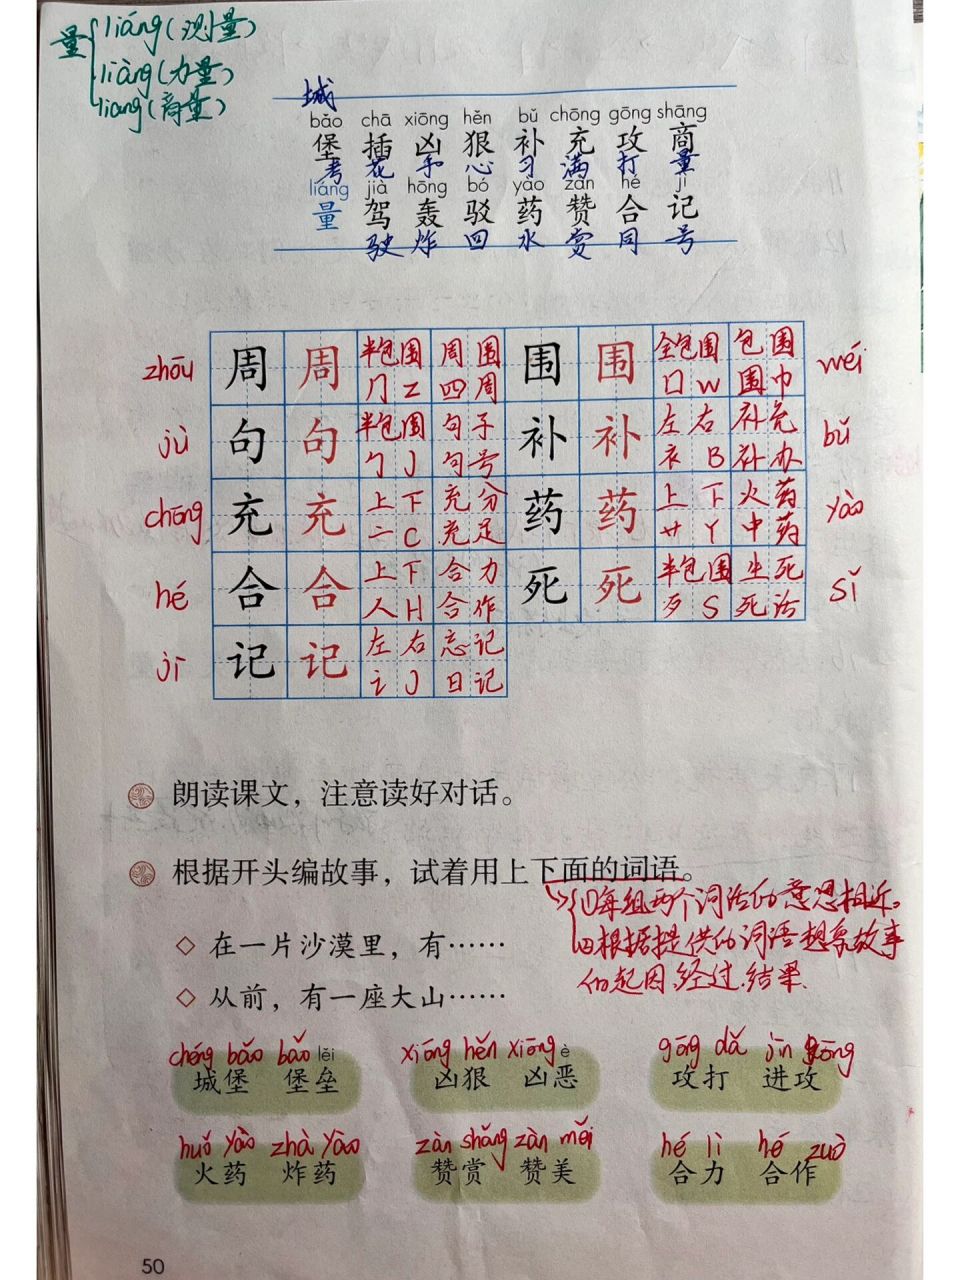 量
liáng(测量)
liàng(力量)
liang(商量)
城
bǎo chā xiōng hěn bǔ chōng gōng shāng
堡 插 凶 狠 补 充 攻 商
考 花 手 心 习 满 打 量
liáng jià hōng bó yào zàn hé jì
量 驾 轰 驳 药 赞 合 记
驶 炸 回 水 赏 同 号
zhōu 周 周 半包围 周围 围 围 全包围 包围 wéi
冂 Z 四周 囗 W 围巾
jù 句 句 半包围 句子 补 补 左右 补充 bǔ
勹 J 句号 衤 B 补办
chōng 充 充 上下 充分 药 药 上下 火药 yào
亠 C 充足 艹 Y 中药
hé 合 合 上下 合力 死 死 半包围 生死 sǐ
人 H 合作 歹 S 死活
jì 记 记 左右 忘记
讠 J 日记
朗读课文，注意读好对话。
根据开头编故事，试着用上下面的词语。
⑴每组两个词语的意思相近。
◇ 在一片沙漠里，有……
⑵根据提供的词语想象故事
的起因.经过.结果.
◇ 从前，有一座大山……
chéng bǎo bǎo lěi xiōng hěn xiōng è gōng dǎ jìn gōng
城堡 堡垒 凶狠 凶恶 攻打 进攻
huǒ yào zhà yào zàn shǎng zàn měi hé lì hé zuò
火药 炸药 赞赏 赞美 合力 合作
50